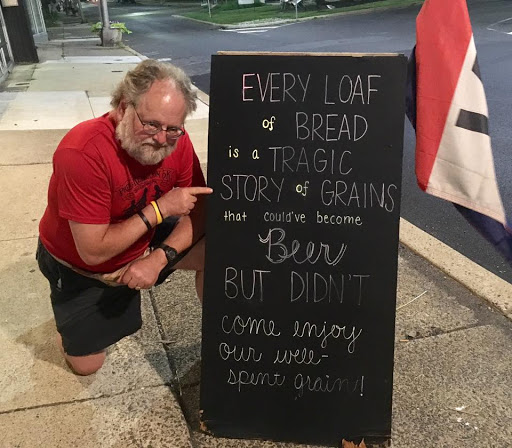 EVERY LOAF
of BREAD
is a TRAGIC
STORY of GRAINS
that could've become
Beer
BUT DIDN'T
come enjoy
our well-
spent grain!